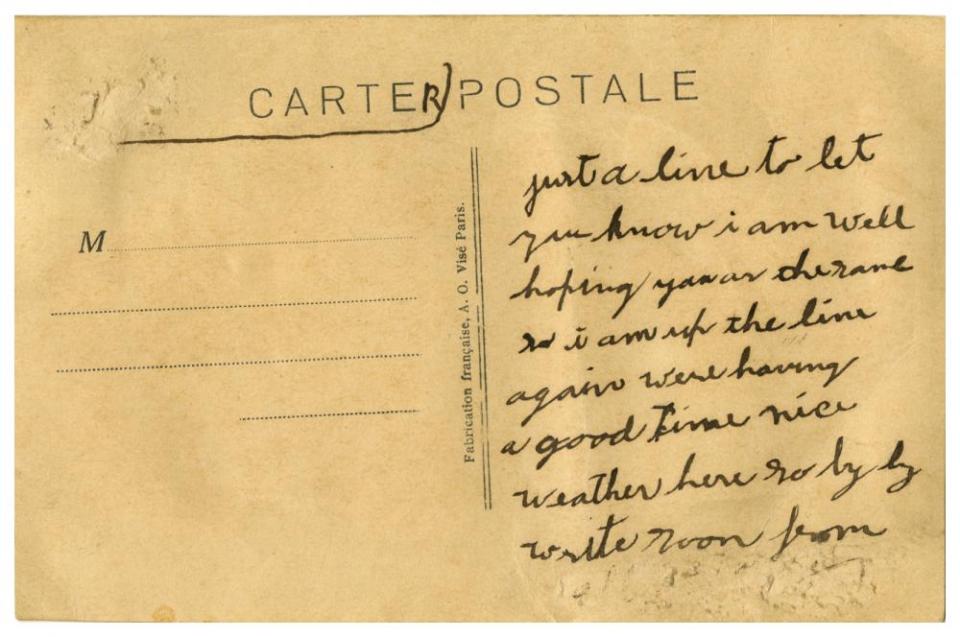 CARTER POSTALE
M
Fabrication française, A. O. Visé Paris.
just a line to let
you know i am well
hoping you ar the same
so i am up the line
again were having
a good time nice
weather here so by by
write soon from